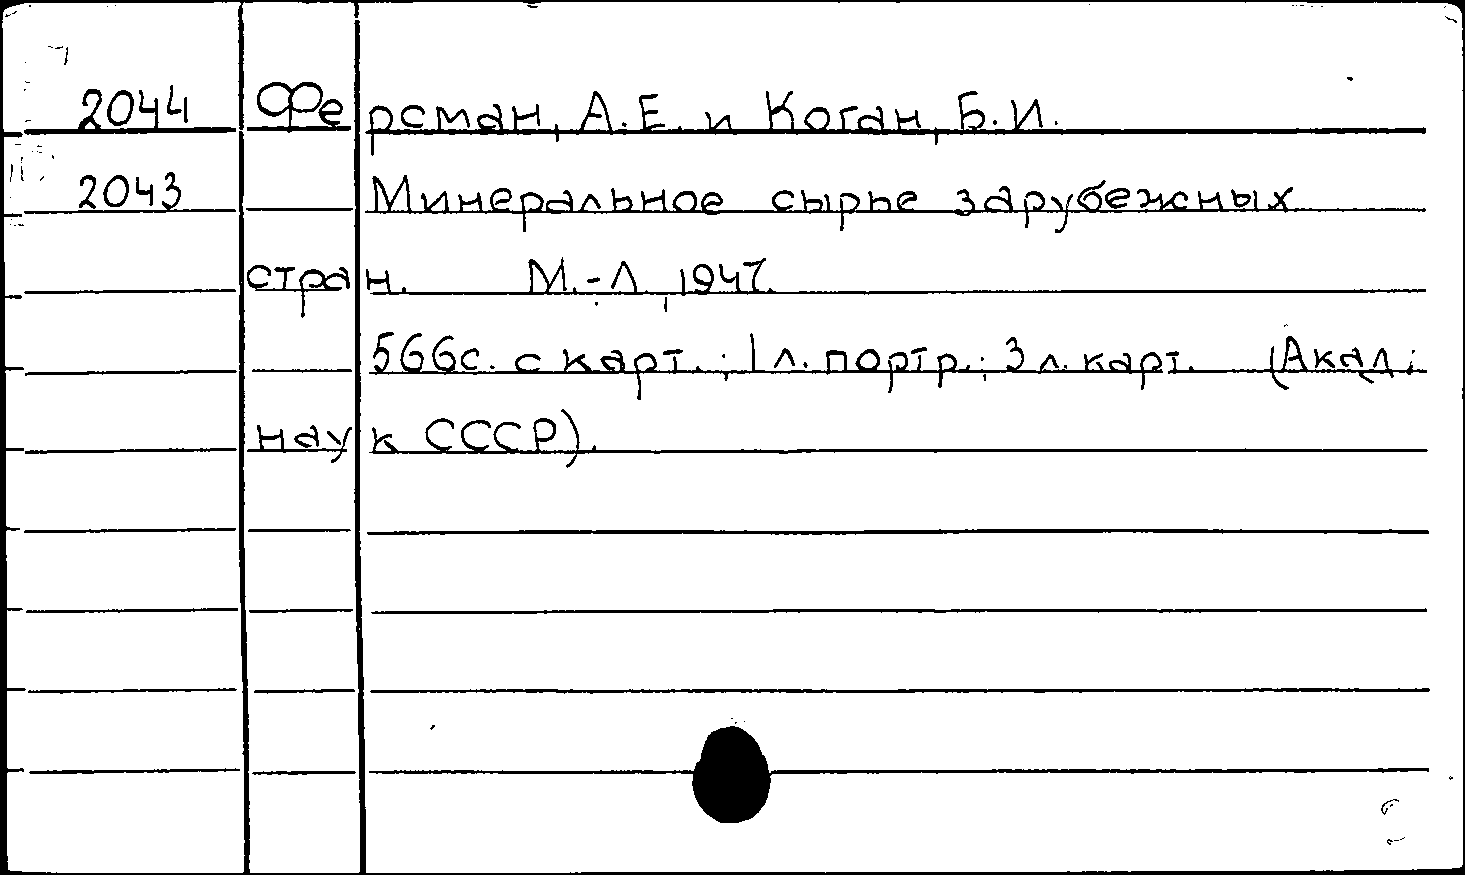 2044 Ферсман, А.Е. и Коган, Б.И.
2043 Минеральное сырье зарубежных
стран. М.-Л., 1947.
566с. с карт.; 1 л. портр.; 3 л. карт. (Акад.
наук СССР).